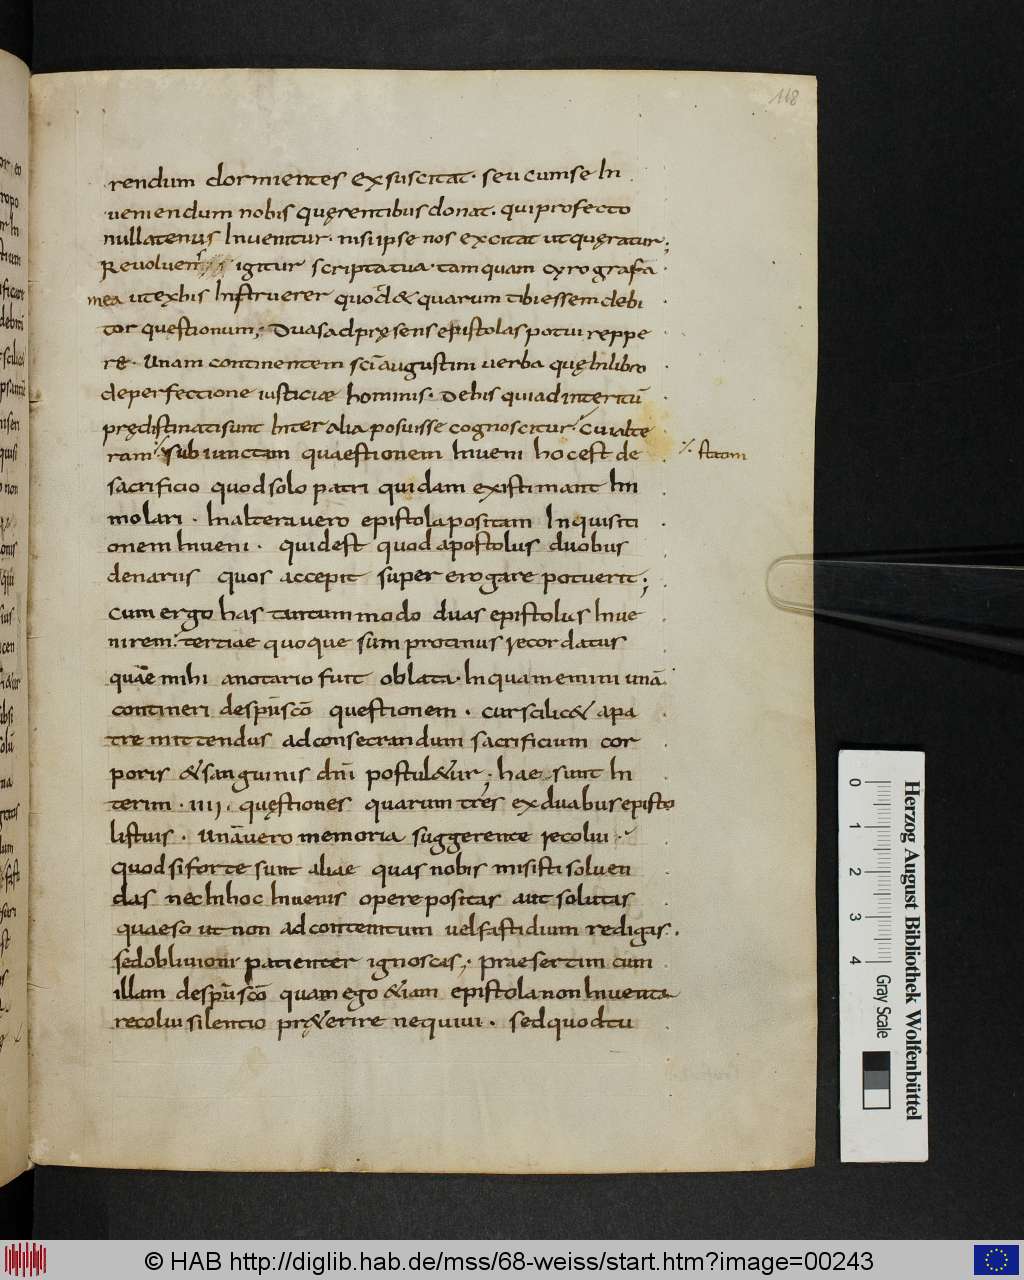 118
rendum dormientes exsuscitat. seu cumse In
ueniendum nobis quęrentibus donat. qui profecto
nullatenus Inuenitur. nisi ipse nos excitat ut quęratur;
Reuoluens igitur scripta tua. tamquam cyrografa
mea ut exhis Instruerer quod & quarum tibi essem debi
tor questionum; Duas ad pręsens epistolas potui reppe
re. Unam continentem sc̄i augustini uerba quę In libro
de perfectione iusticiæ hominis. De his qui ad interitū
prędistinati sunt Inter alia posuisse cognoscitur; Cui alte
ram ⁒ subiunctam quaestionem Inueni hoc est de
⁒ statim
sacrificio quod solo patri quidam existimant Im
molari. In altera uero epistola positam Inquisiti
onem Inueni. quid est quod apostolus duobus
denariis quos accepit supererogare potuerit;
Cum ergo has tantummodo duas epistolas Inue
nirem. tertiae quoque sum protinus recordatus
quae mihi a notario fuit oblata. In quam enim unā
contineri despūscō questionem. cur scilic& a pa
tre mittendus ad consecrandum sacrificium cor
poris & sanguinis dn̄i postul&ur. hae sunt In
terim .IIII. quęstiones quarum tres ex duabus episto
lis tuis. Unā uero memoria suggerente recolui.
quod si forte sunt aliae quas nobis misisti soluen
das nec In hoc Inuenis opere positas aut solutas
quaeso ut non ad contemtum uel fastidium redigas.
sed obliuioni patienter ignoscas; praesertim cum
illam despūscō quam ego &iam epistola non Inuenta
recolui silentio prę&erire nequiui. sed quod tu
0 1 2 3 4
Gray Scale
Herzog August Bibliothek Wolfenbüttel
© HAB http://diglib.hab.de/mss/68-weiss/start.htm?image=00243